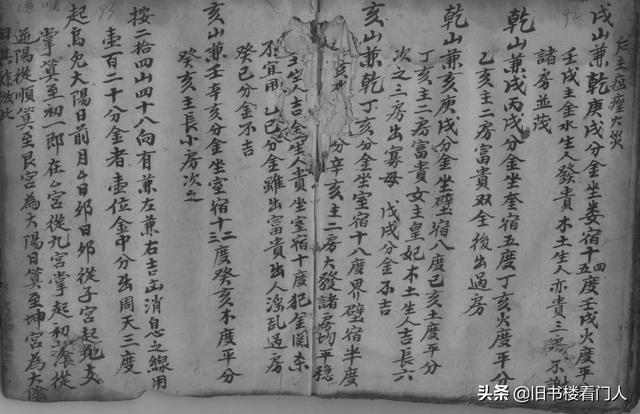 92
后主瘟瘴火災
戌山兼乾庚戌分金坐婁宿十四五度壬戌火度平
壬戌主金水生人發貴木土生人亦貴三房不利
諸房並茂
乾山兼戌丙戌分金坐奎宿五度丁亥火度平分
乙亥主二房富貴雙全後出過房
乾山兼亥庚戌分金坐壁宿八度己亥土度平分
丁亥主二房富貴女主皇妃木土生人吉長六
次之三房出寡母 戊戌分金不吉
亥山兼乾丁亥分金坐室宿十八度界壁宿半度
分辛亥主二房大發諸房均平穩
生人吉金生人貴坐室宿十度犯金關杀
不宜用乙巳分金雖出富貴出人淫乱過房
癸巳分金不吉
亥山兼壬辛亥分金坐室宿十二三度癸亥木度平分
癸亥主長小房次之
按二拾四山四十八向有兼左兼右吉凶消息之線用
壹百二十分金者壹位金中分出周天三度
起烏兔太陽日前月
掌算至初一郎在
逆陽從順算至艮宮為太陽日算至坤宮為太陰
日其餘倣此
93
头条 @旧书楼看门人